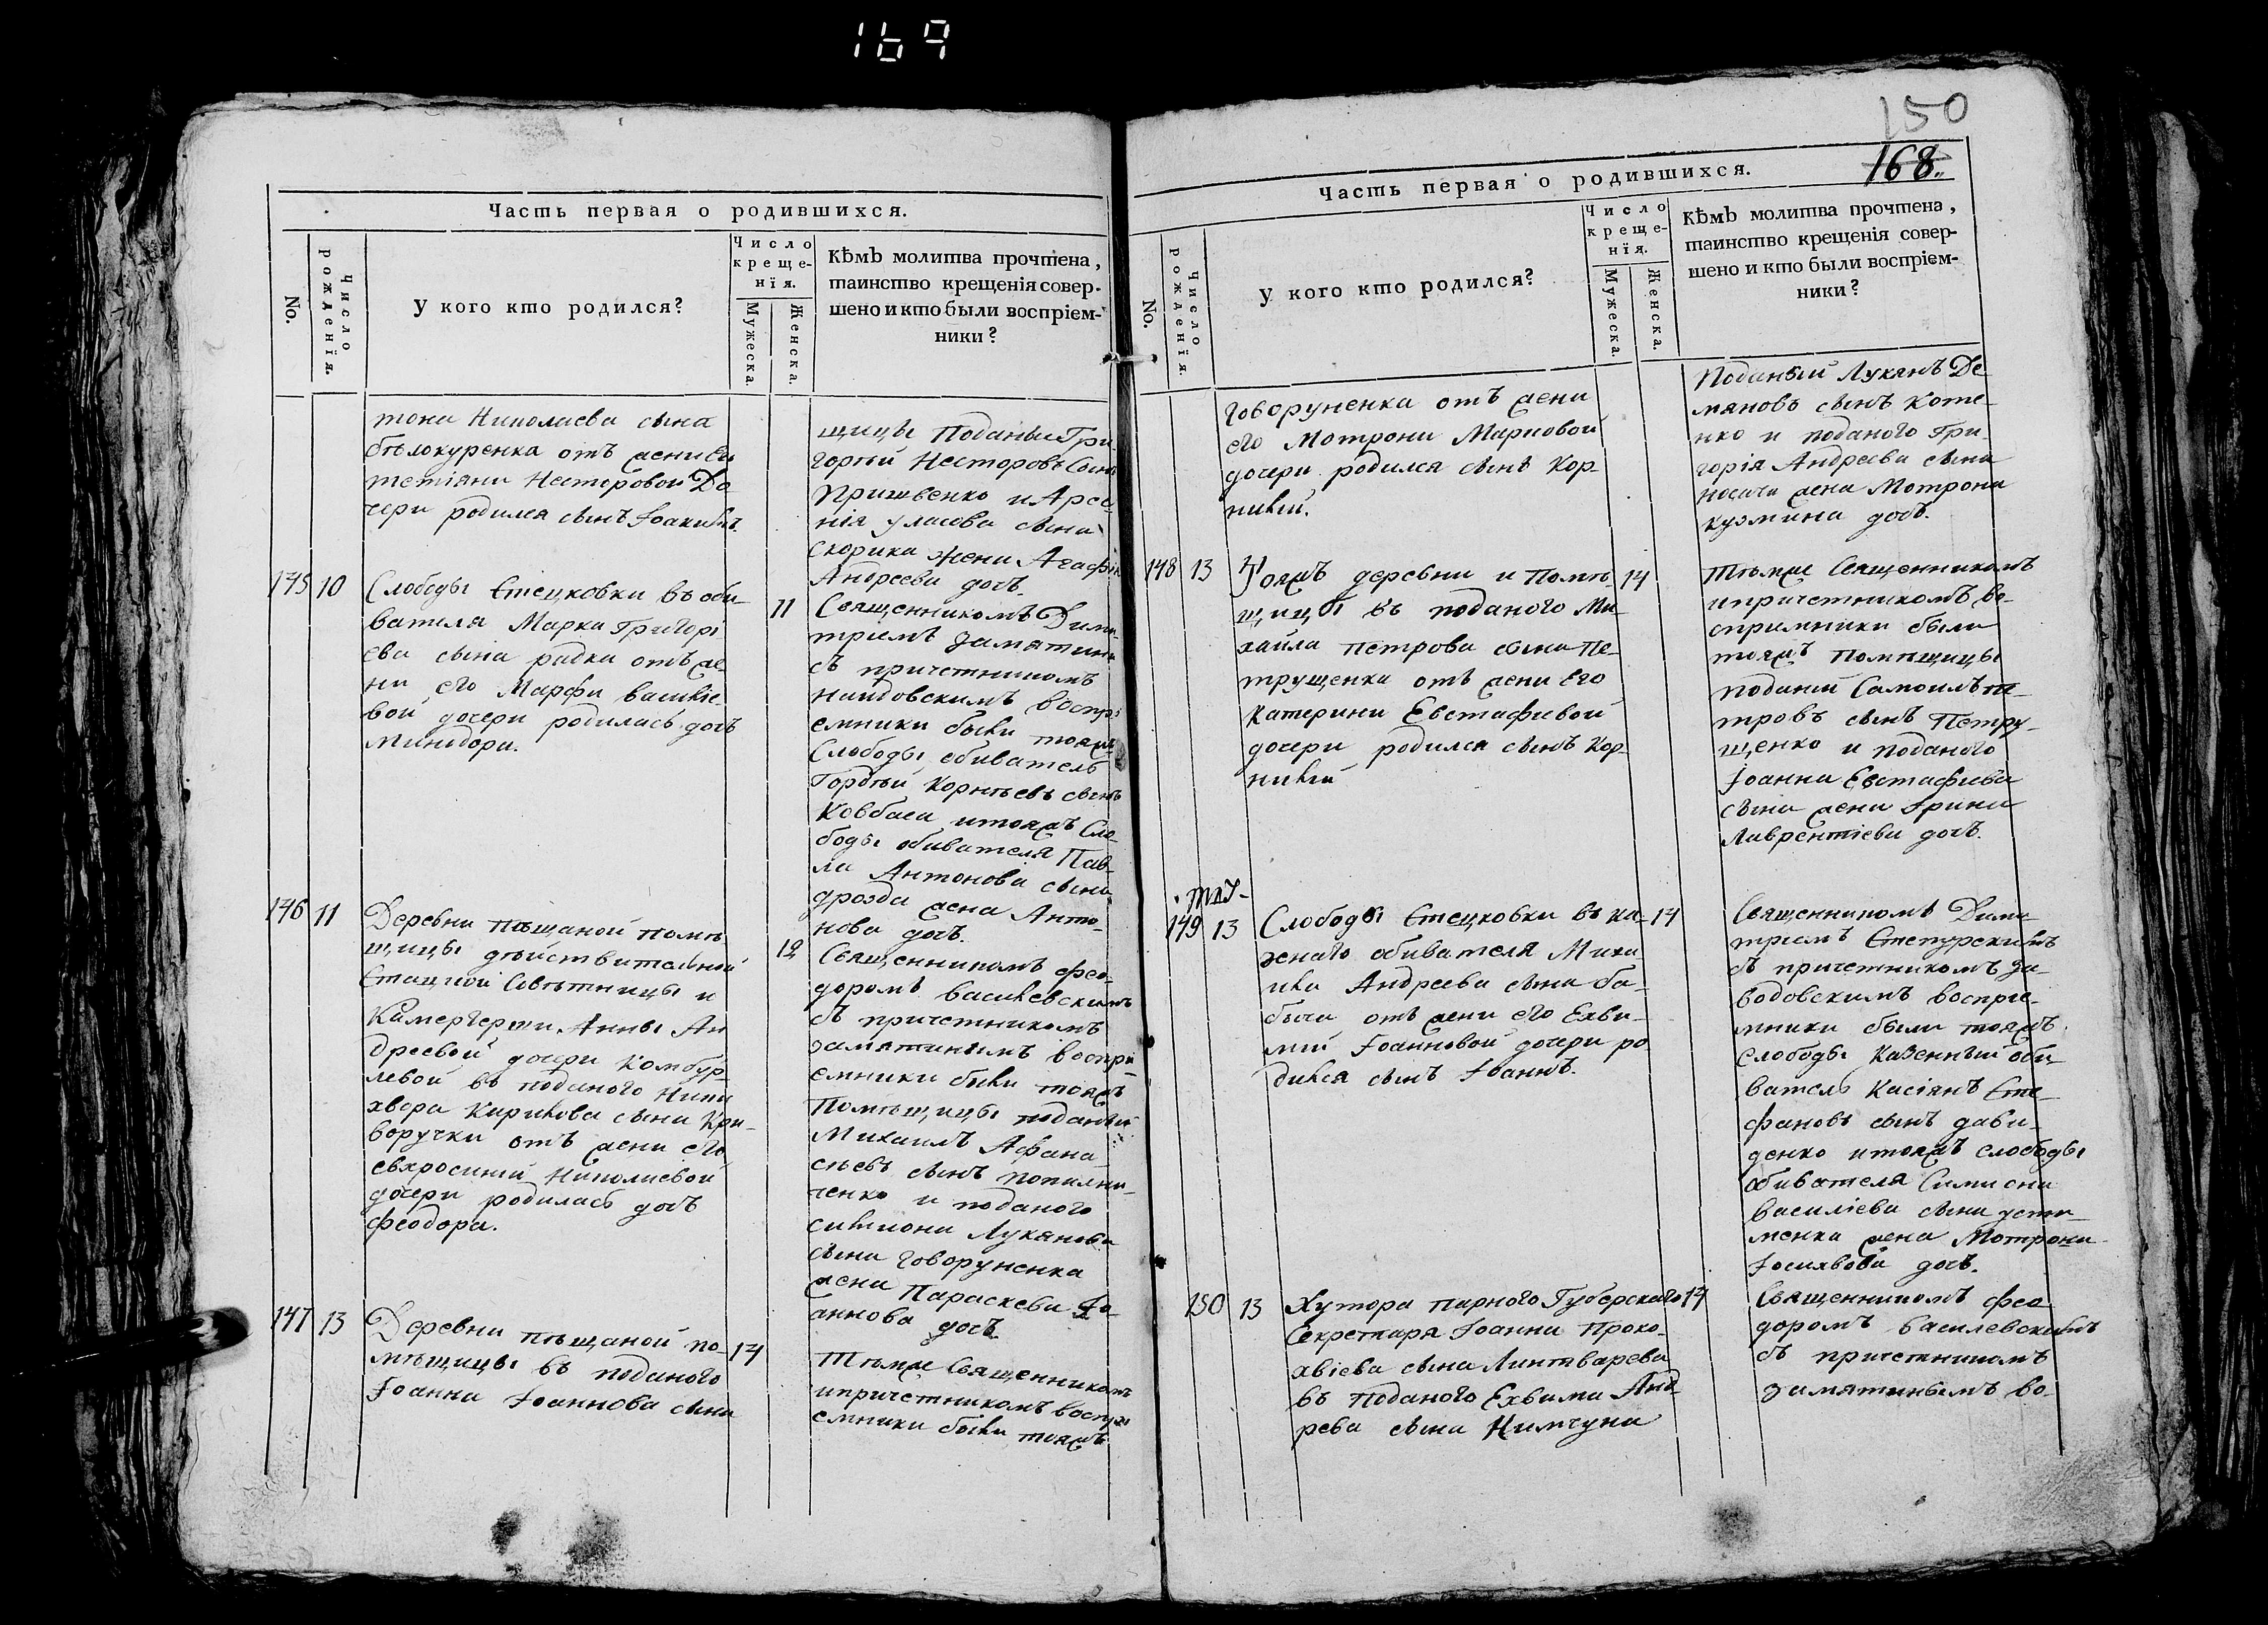 169
Часть первая о родившихся.
No.
Число рожденїя.
У кого кто родился?
Число
креще-
нїя.
Мужеска.
Женска.
Кѣмъ молитва прочтена,
таинство крещенія совер-
шено и кто были воспріем-
ники?
тона Николаева сына
бѣлокуренка отъ жени его
тетіяни Несторовой До
чери родился сынъ Іоакимъ.
щицы Поданый Гри
горій Несторовъ Сынъ
и Арсе
нія уласова сына
скорика жени Агафія
Андреева дочь.
145 10
Слободы Стецковки въ оби
вателя Марка Григорі
ева сына радка отъ же
ни его Марфи василіе
вой дочери родилась дочь
Минодора.
11
Священникомъ Дими
тріемъ
съ причетникомъ
воспрі
емники были тояжъ
Слободы обиватель
Гордѣй Корнѣевъ сынъ
Ковбаса итояжъ Сло
боды обивателя Пав
ла Антонова сына
дрозда жена Анто-
нова дочь.
146 11
Деревни пѣщаной помѣ
щицы дѣйствителной
Статской Совѣтницы и
Камергерши Анны Ан
дреевой дочери Комбур-
левой въ поданого Ники
хвора Кирилова сына Кри-
воручки отъ жени его
евхросиніи Николаевой
дочери родилась дочь
Феодора.
12
Священникомъ Фео
доромъ василевскимъ
съ причетникомъ
замятинымъ воспрі
емники были тояжъ
Помѣщицы поданый
Михаилъ Афана
сіевъ сынъ
и поданого
симиона Луканова
сына говоруненка
жени Параскева Іо
аннова дочь.
147 13
Деревни пѣщаной по-
мѣщицы въ поданого
Іоанна Іоаннова сына
14
Тѣмже Священникомъ
ипричетникомъ воспрі
емники были тояжъ
150
168
Часть первая о родившихся.
No.
Число рожденїя.
У кого кто родился?
Число
креще-
нїя.
Мужеска.
Женска.
Кѣмъ молитва прочтена,
таинство крещенія совер-
шено и кто были воспріем-
ники?
говоруненка отъ жени
его Мотрони Марковой
дочери родился сынъ Кор-
нилій.
Поданый Луканъ Де
мяновъ сынъ Коте-
нко и поданого Гри-
горія Андреева сына
носача жена Мотрона
кузмина дочь.
148 13
Тояжъ деревни и Помѣ-
щицы въ поданого Ми-
хаила Петрова сына Пе-
трущенка отъ жени его
Катерини Евстафиевой
дочери родился сынъ Кор-
нилій
14
Тѣмже Священникомъ
ипричетникомъ во-
сприемники были
тояжъ помѣщицы
поданый Самоилъ пе-
тровъ сынъ Петру-
щенко и поданого
Іоанна Евстафиева
сына жена Ирина
Лаврентіева дочь.
149 13
Слободы Стецковки въ ка-
зенаго обивателя Миха
ила Андреева сына ба-
быча отъ жени его Ехви-
міи Іоанновой дочери ро
дился сынъ Іоаннъ.
14
Священникомъ Дими
тріемъ
съ причетникомъ за-
водовскимъ воспрїе-
мники были тояжъ
слободы Казенный оби
ватель Касіянъ Сте-
фановъ сынъ дави-
денко итояжъ слободы
обивателя Симиона
василіева сына усти-
менка жена Мотрона
Іосиявова дочь.
150 13
Хутора парного Губерскаго
Секретаря Іоанна Проко-
хвіева сына Линтварева
въ поданого Ехвима Анд
рева сына Нимчуна
14
Священникомъ Фео
доромъ василевскимъ
съ причетникомъ
замятинымъ во-